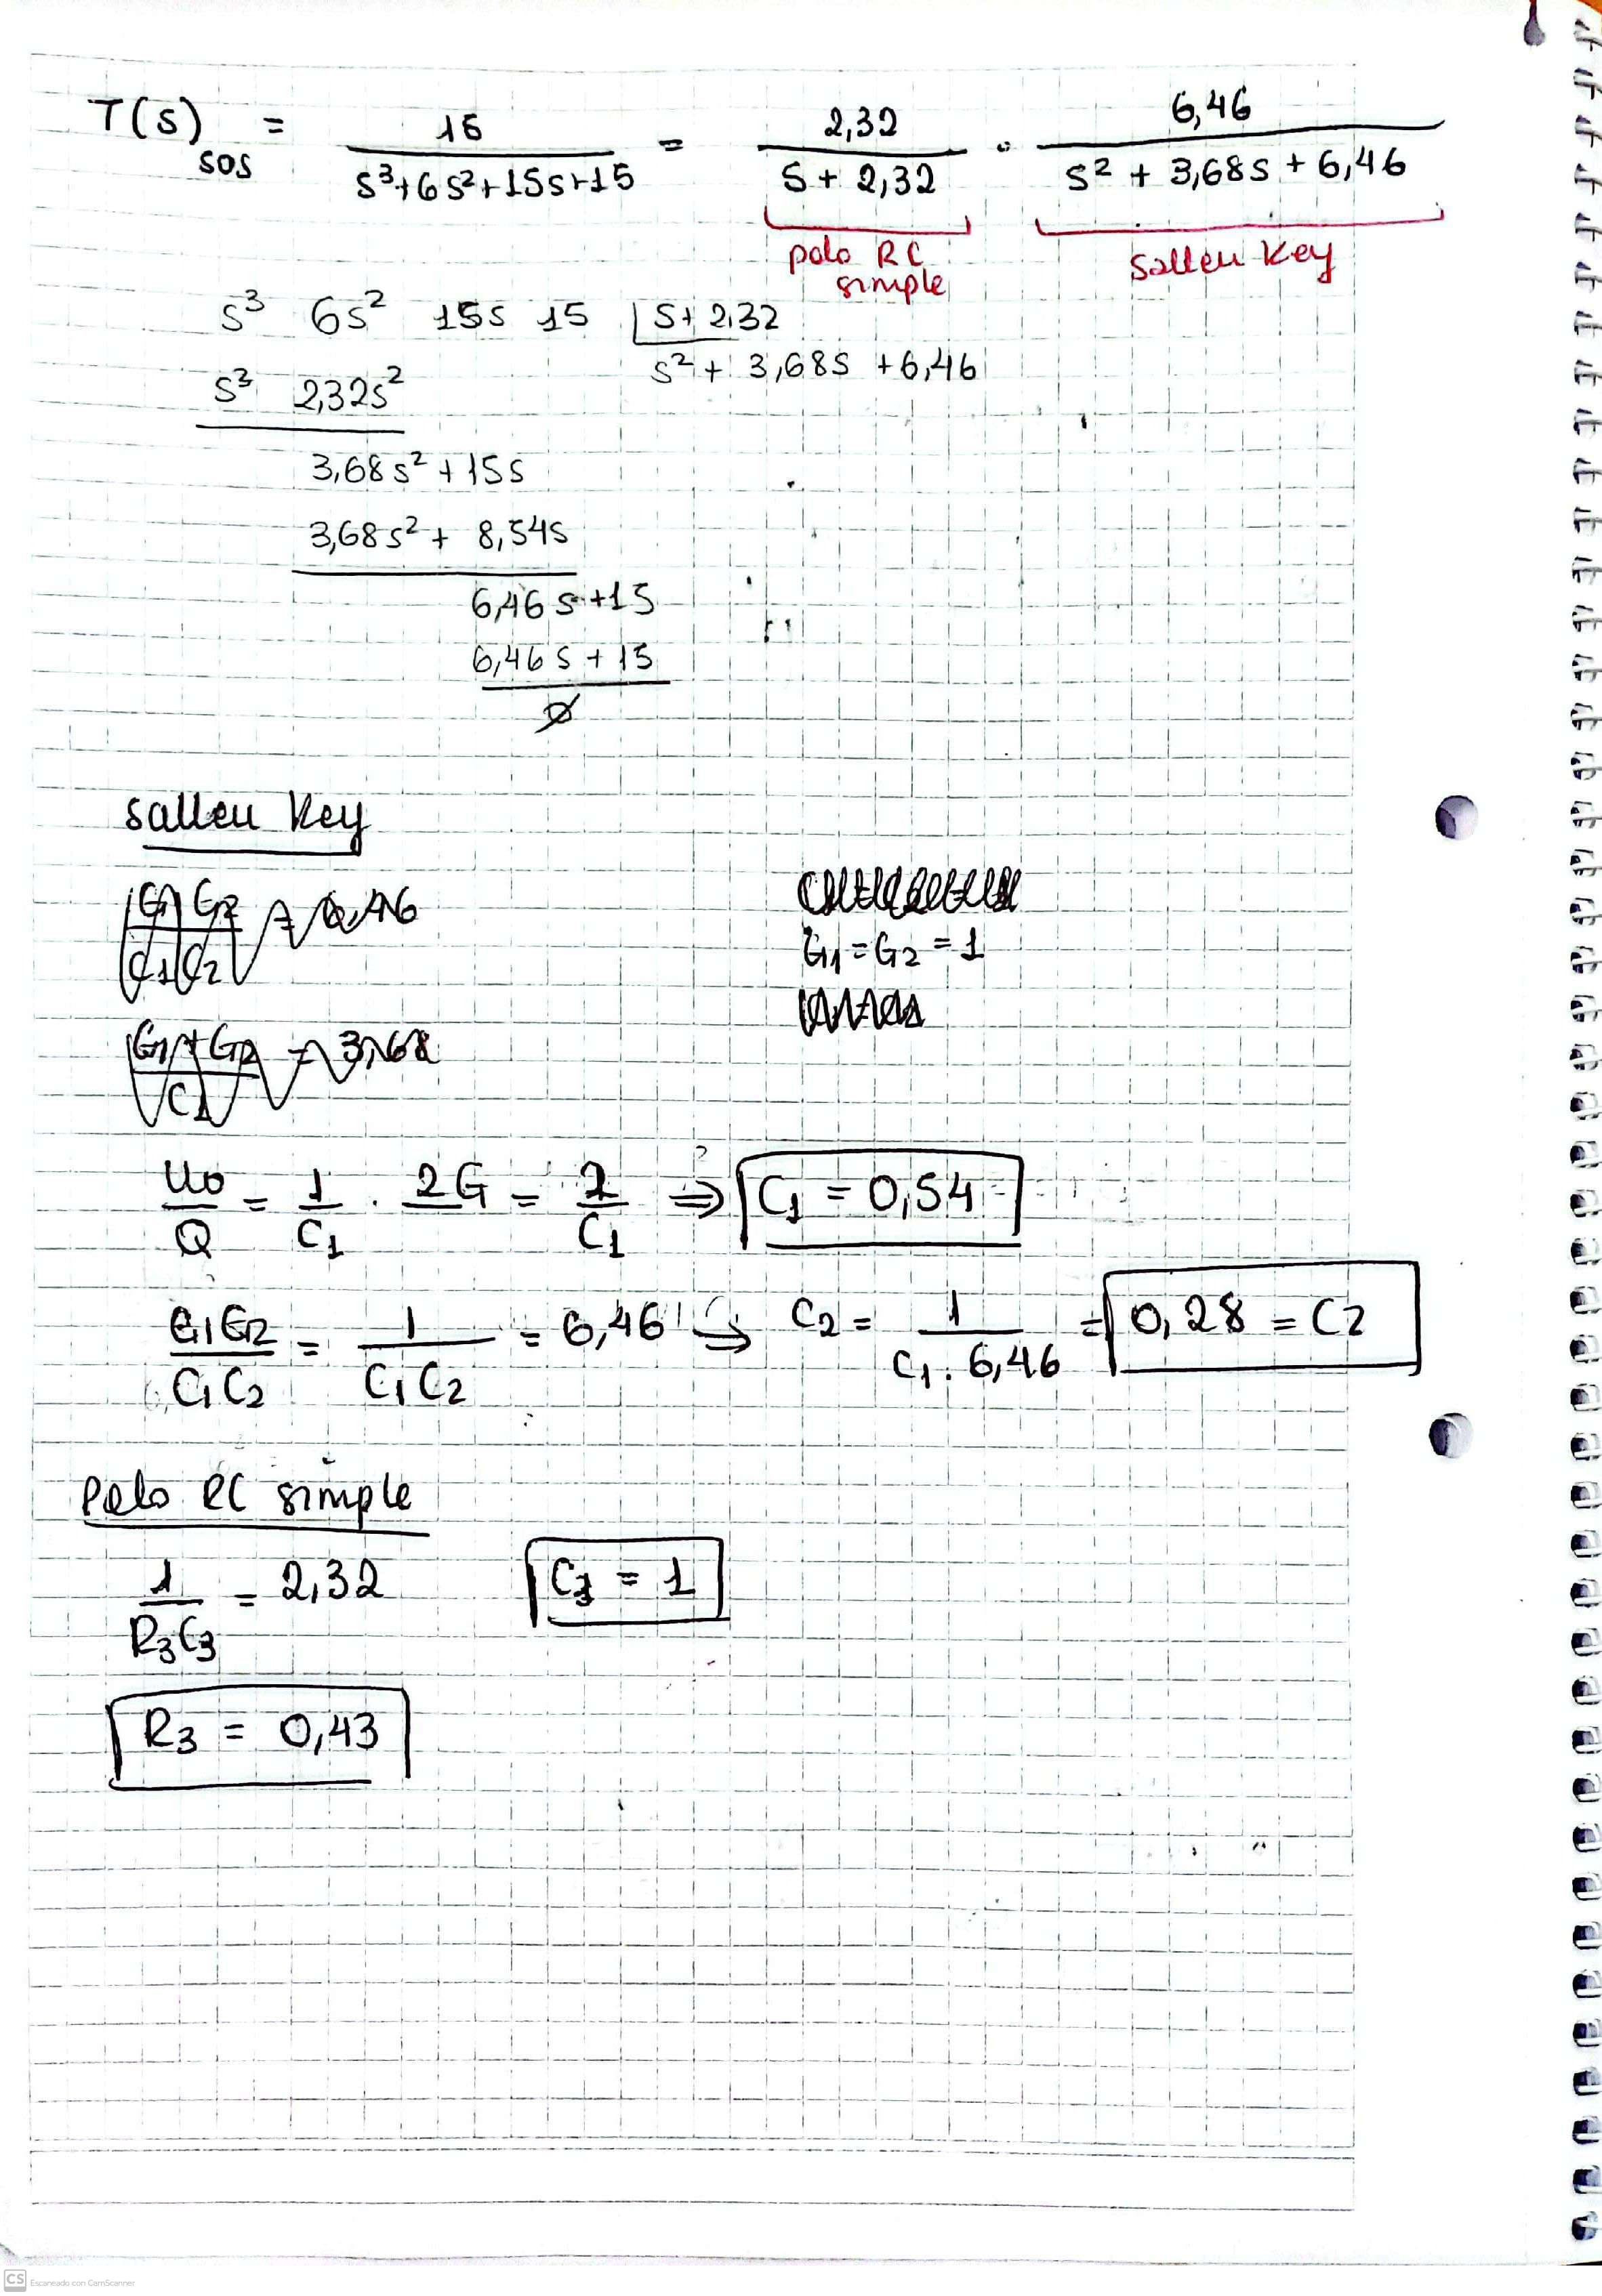 T(s) SOS = 15 / (s³+6s²+15s+15) = 2,32 / (s + 2,32) · 6,46 / (s² + 3,68s + 6,46)
polo RC simple
Sallen Key
s³ 6s² 15s 15 | s+2,32
s³ 2,32s² s² + 3,68s + 6,46
3,68s² + 15s
3,68s² + 8,54s
6,46s + 15
6,46s + 15
0
Sallen Key
G1 G2 / C1 C2 = 6,46
G1 = G2 = 1
G1+G2 / C1 = 3,68
ωo / Q = 1 / C1 · 2G = 2 / C1 ⇒ C1 = 0,54
G1G2 / C1C2 = 1 / C1C2 = 6,46 → C2 = 1 / C1 · 6,46 = 0,28 = C2
Polo RC simple
1 / R3C3 = 2,32 C3 = 1
R3 = 0,43
CS Escaneado con CamScanner